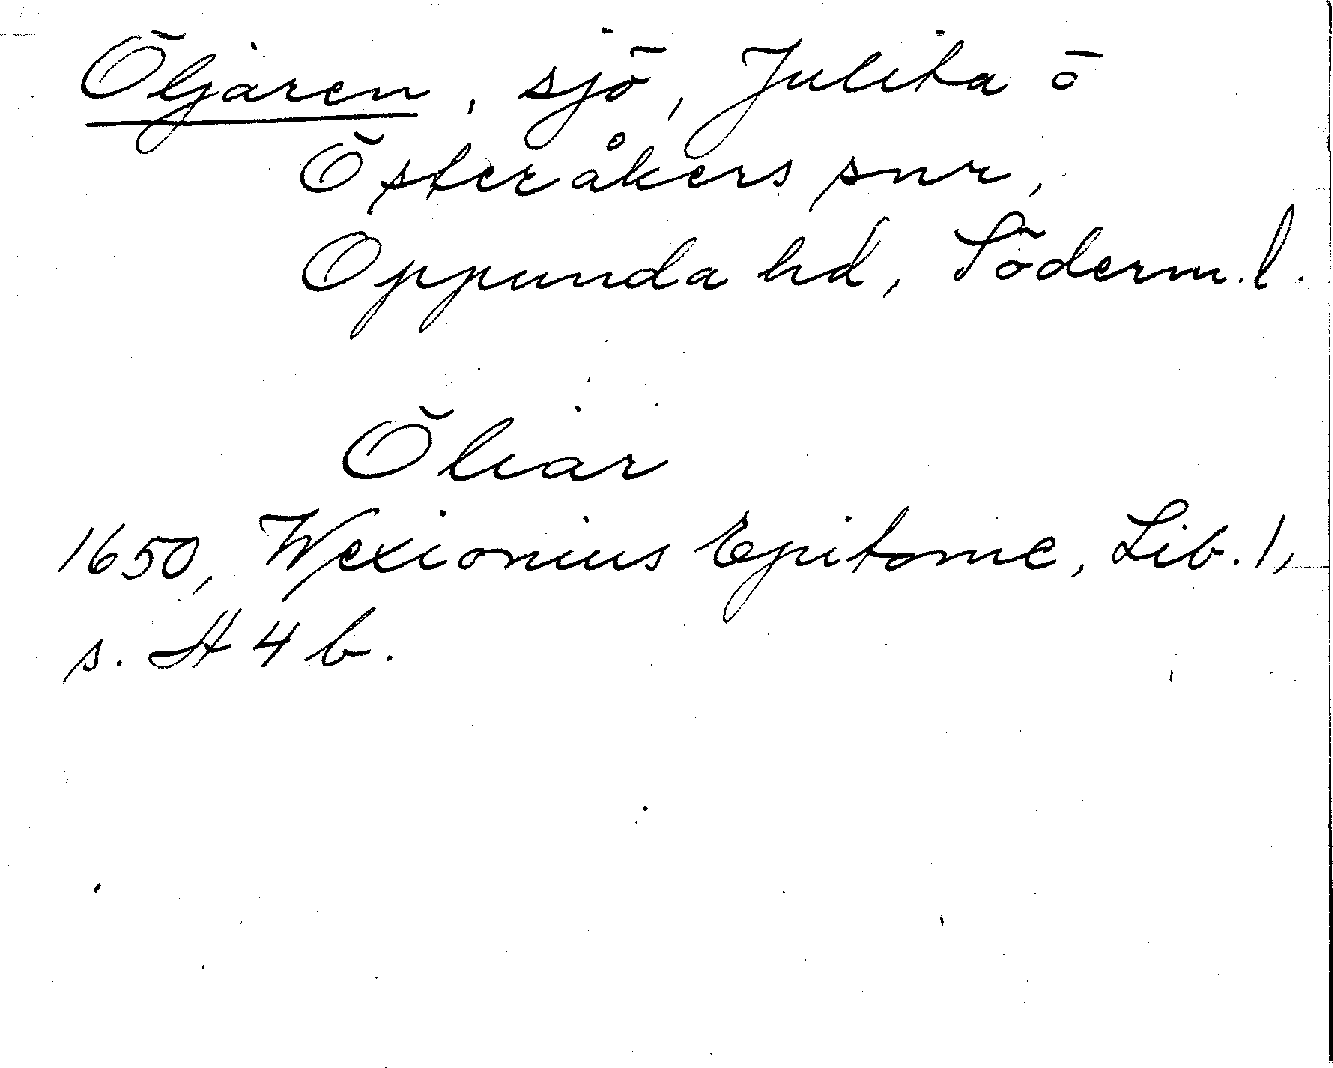 Öljaren, sjö, Julita ō
Österåkers snr,
Oppunda hd, Söderm.l.
Öliar
1650, Wexionius Epitome, Lib. 1,
s. H 4 b.